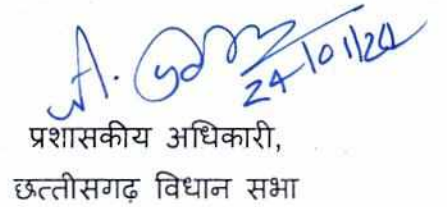 24/01/24
प्रशासकीय अधिकारी,
छत्तीसगढ़ विधान सभा